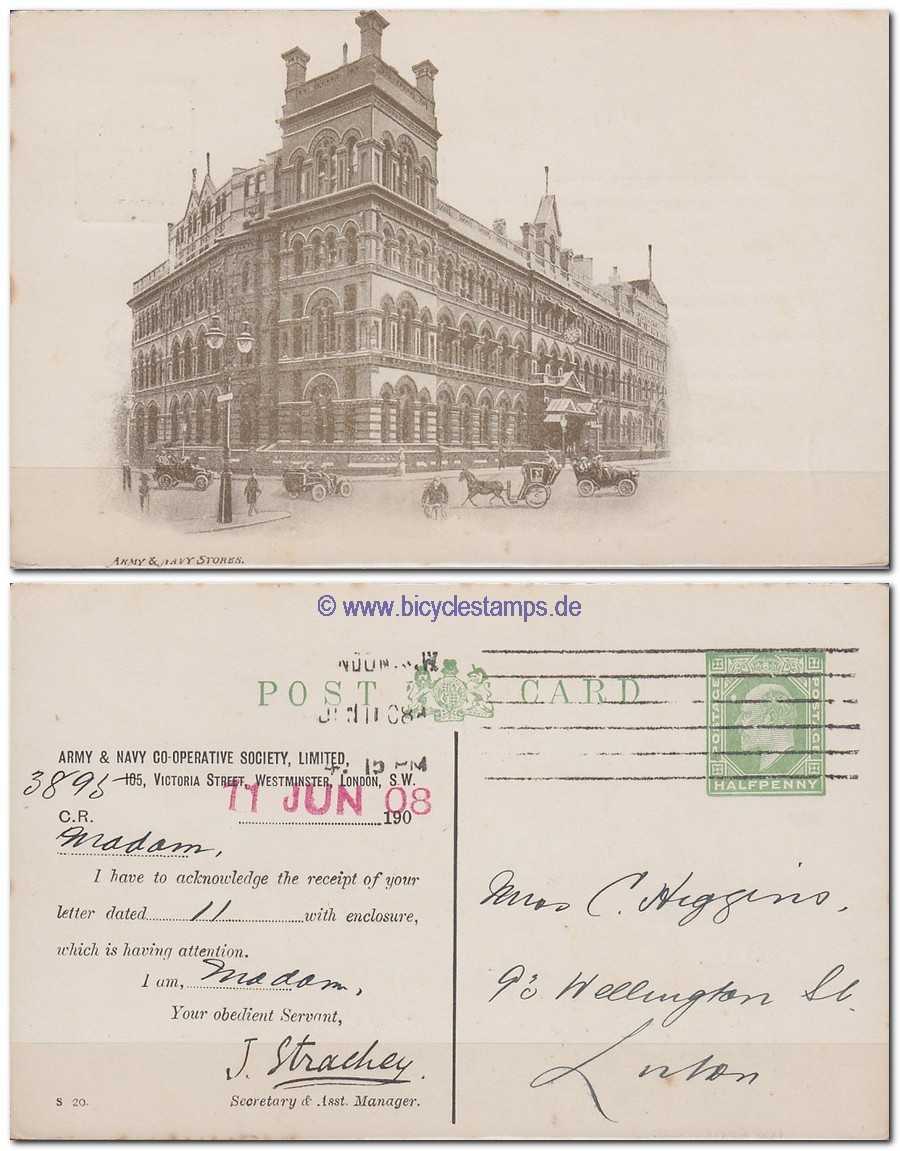 ARMY & NAVY STORES.
© www.bicyclestamps.de
JUN 11 08
4. 15 PM
POST CARD
POSTAGE
HALFPENNY
ARMY & NAVY CO-OPERATIVE SOCIETY, LIMITED,
3895 105, VICTORIA STREET, WESTMINSTER, LONDON, S.W.
11 JUN 08
C.R. 190
Madam,
I have to acknowledge the receipt of your
letter dated 11 with enclosure,
which is having attention.
I am, Madam,
Your obedient Servant,
J. Strachey.
S 20. Secretary & Asst. Manager.
C. Higgins,
Wellington St.
Luton